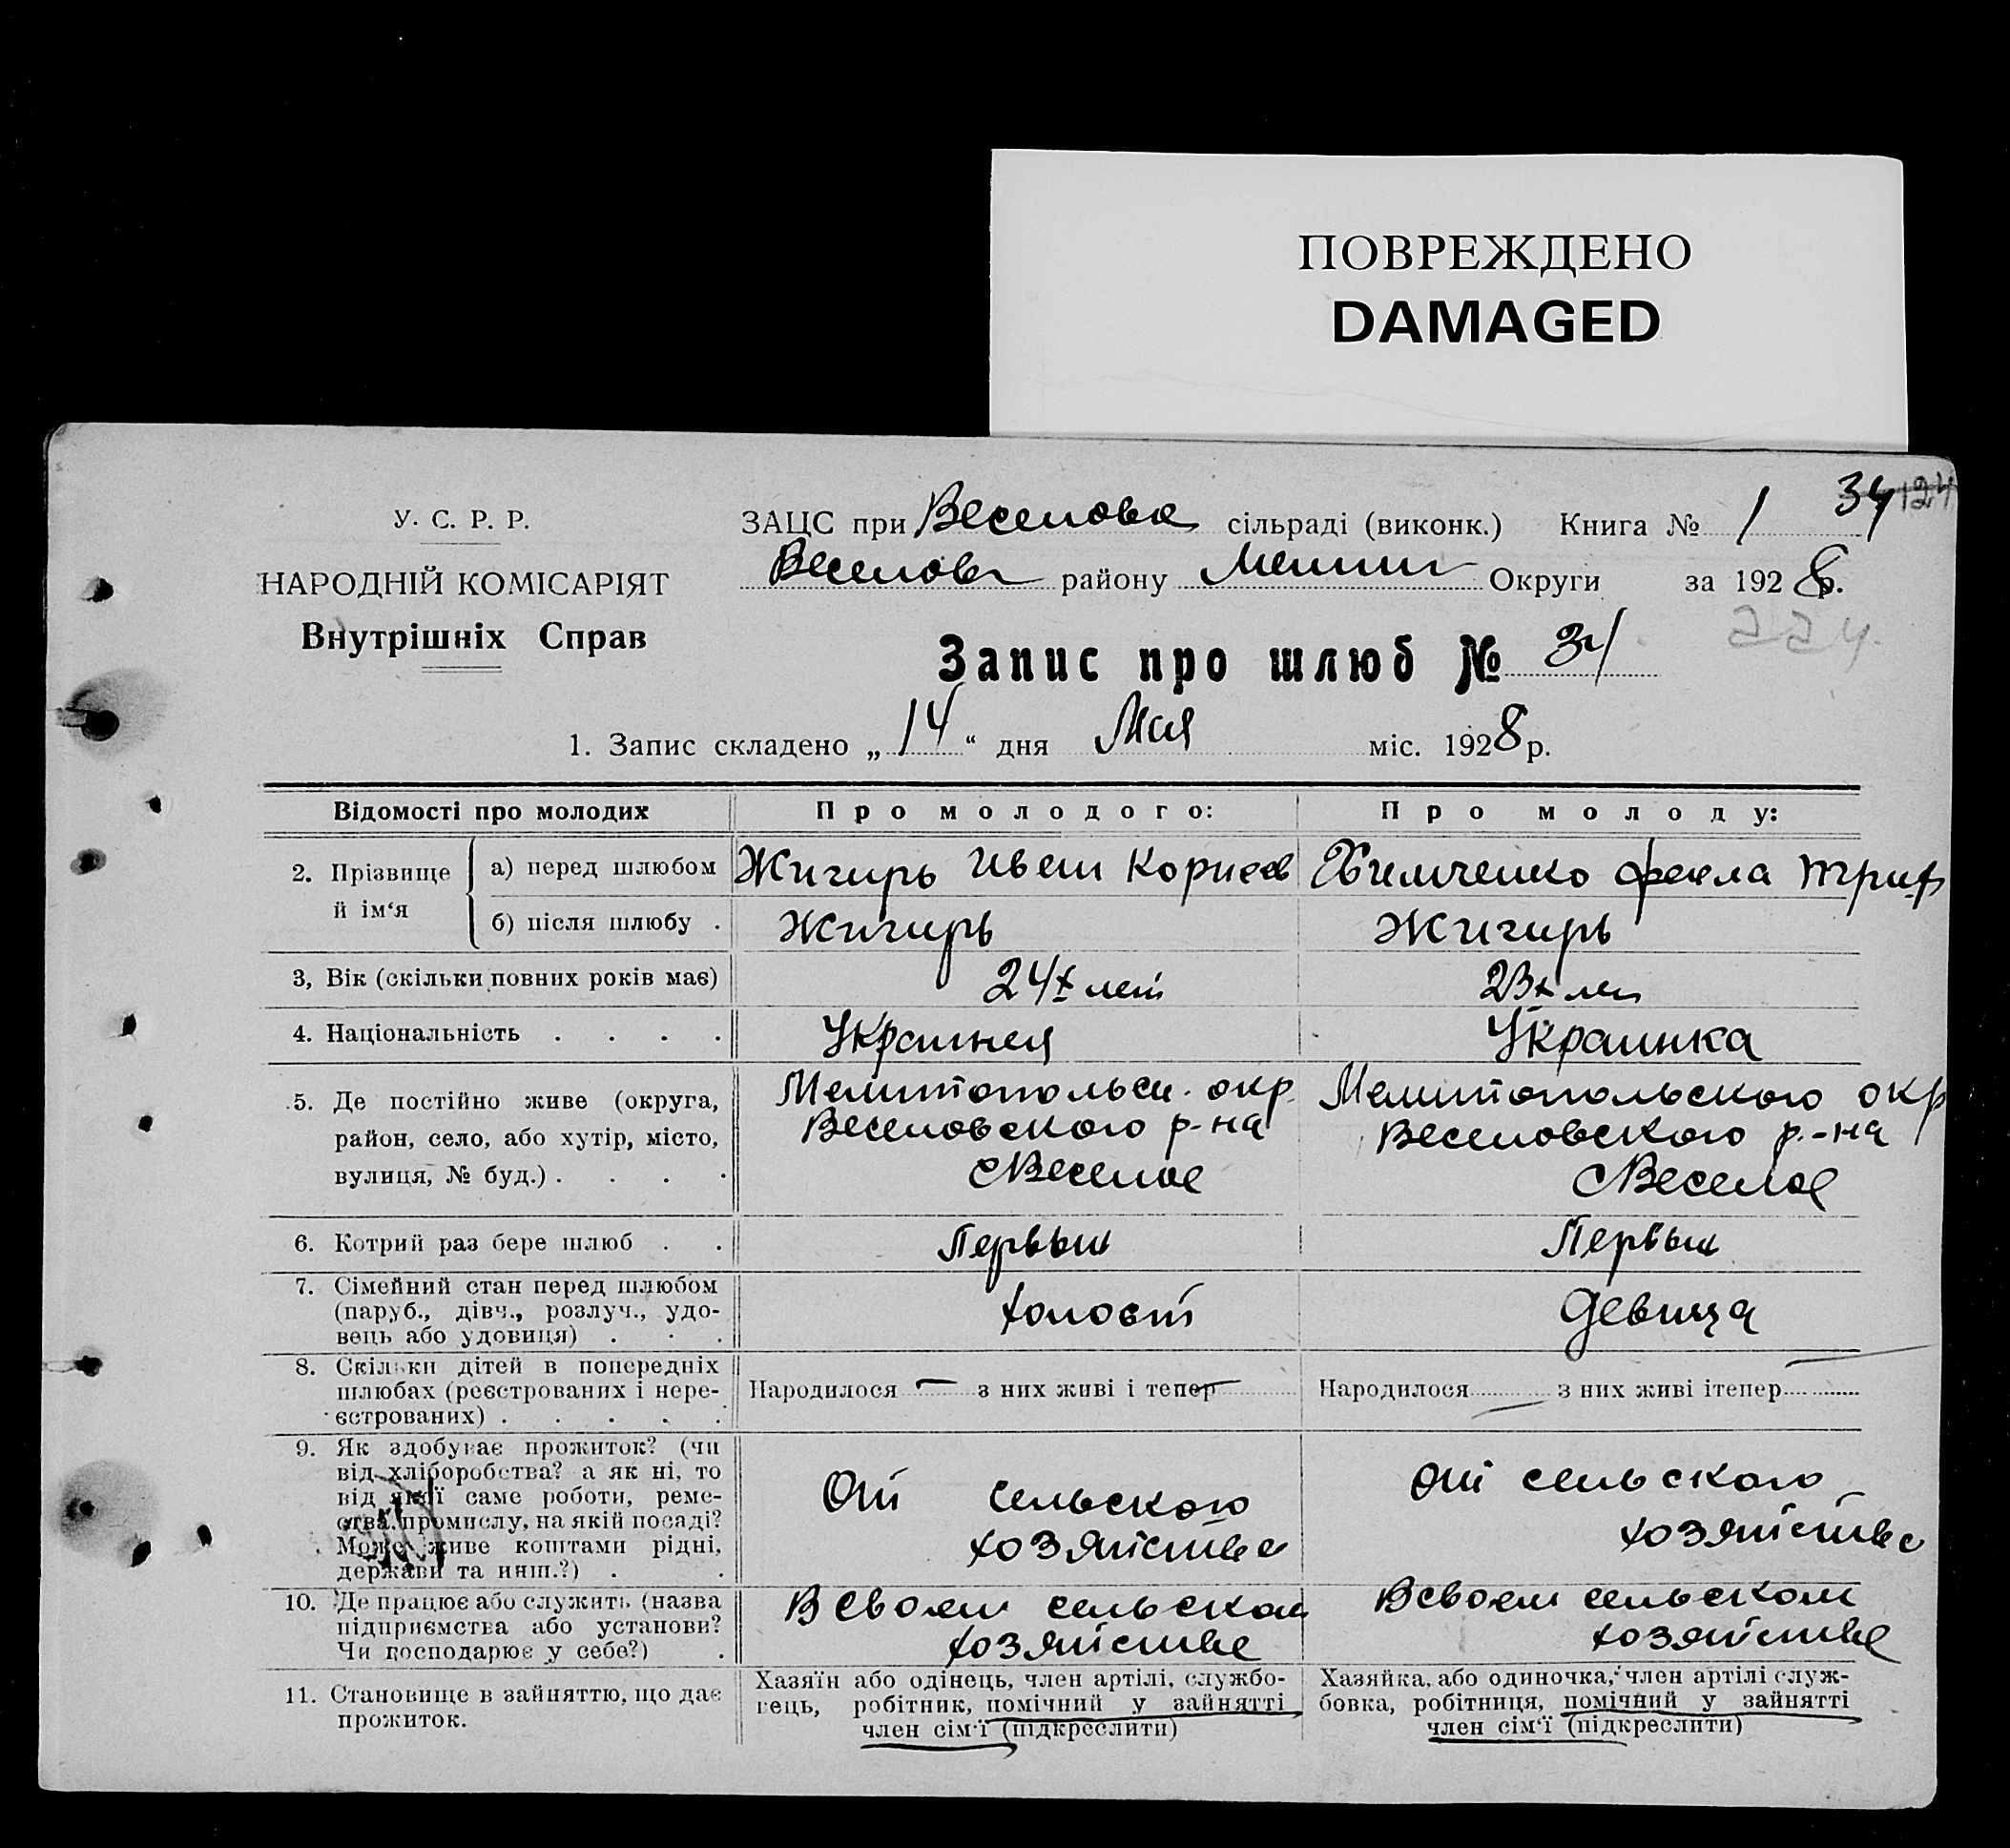 ПОВРЕЖДЕНО
DAMAGED
34 124
У. С. Р. Р.
НАРОДНІЙ КОМІСАРІЯТ
Внутрішніх Справ
ЗАЦС при Веселовск сільраді (виконк.) Книга № 1
Веселовск району Мелит Округи за 1928 р.
224
Запис про шлюб № 34
1. Запис складено „14“ дня Мая міс. 1928 р.
Відомості про молодих Про молодого: Про молоду:
2. Прізвище й ім‘я
а) перед шлюбом Жигирь Иван Корнеев Химченко Фекла Триф
б) після шлюбу . Жигирь Жигирь
3, Вік (скільки повних років має) 24х лет 23х лет
4. Національність . . . . Украинец Украинка
5. Де постійно живе (округа,
район, село, або хутір, місто,
вулиця, № буд.) . . . .
Мелитопольск. окр.
Веселовского р-на
с Веселое
Мелитопольского окр
Веселовского р.-на
с Веселое
6. Котрий раз бере шлюб . . Первый Первый
7. Сімейний стан перед шлюбом
(паруб., дівч., розлуч., удо-
вець або удовиця) . . .
холост девица
8. Скільки дітей в попередніх
шлюбах (реєстрованих і нере-
єстрованих) . . . . .
Народилося — з них живі і тепер —
Народилося — з них живі ітепер —
9. Як здобуває прожиток? (чи
від хліборобства? а як ні, то
від якої саме роботи, реме-
ства, промислу, на якій посаді?
Може живе коштами рідні,
держави та инш.?) . .
От сельского
хозяйства
От сельского
хозяйства
10. Де працює або служить (назва
підприємства або установи?
Чи господарює у себе?) .
В своем сельском
хозяйстве
В своем сельском
хозяйстве
11. Становище в зайняттю, що дає
прожиток.
Хазяїн або одінець, член артілі, службо-
вець, робітник, помічний у зайнятті
член сім‘ї (підкреслити)
Хазяйка, або одиночка, член артілі служ-
бовка, робітниця, помічний у зайнятті
член сім‘ї (підкреслити)